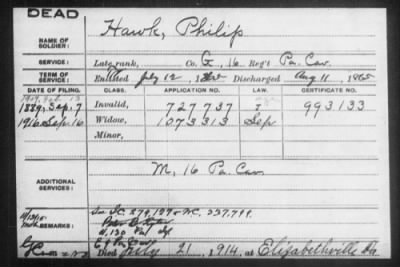 DEAD
NAME OF SOLDIER: Hawk, Philip
SERVICE: Late rank, Co. G, 16 Reg't Pa. Cav.
TERM OF SERVICE: Enlisted July 12, Discharged Aug 11, 1865
DATE OF FILING. CLASS. APPLICATION NO. LAW. CERTIFICATE NO.
1889, Sep. 7 Invalid, 727737 993133
1916 Sep. 16 Widow, 1073313 Sep
Minor,
ADDITIONAL SERVICES: M, 16 Pa. Cav.
REMARKS:
Died July 21, 1914, at Elizabethville Pa.